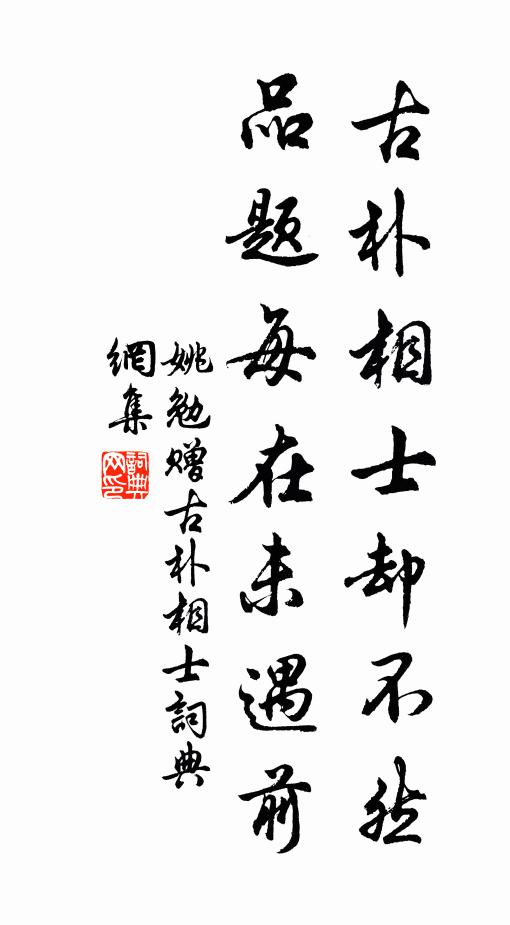 古朴相士却不然
品题每在未遇前
姚勉赠古朴相士詞典
網集
詞典網印